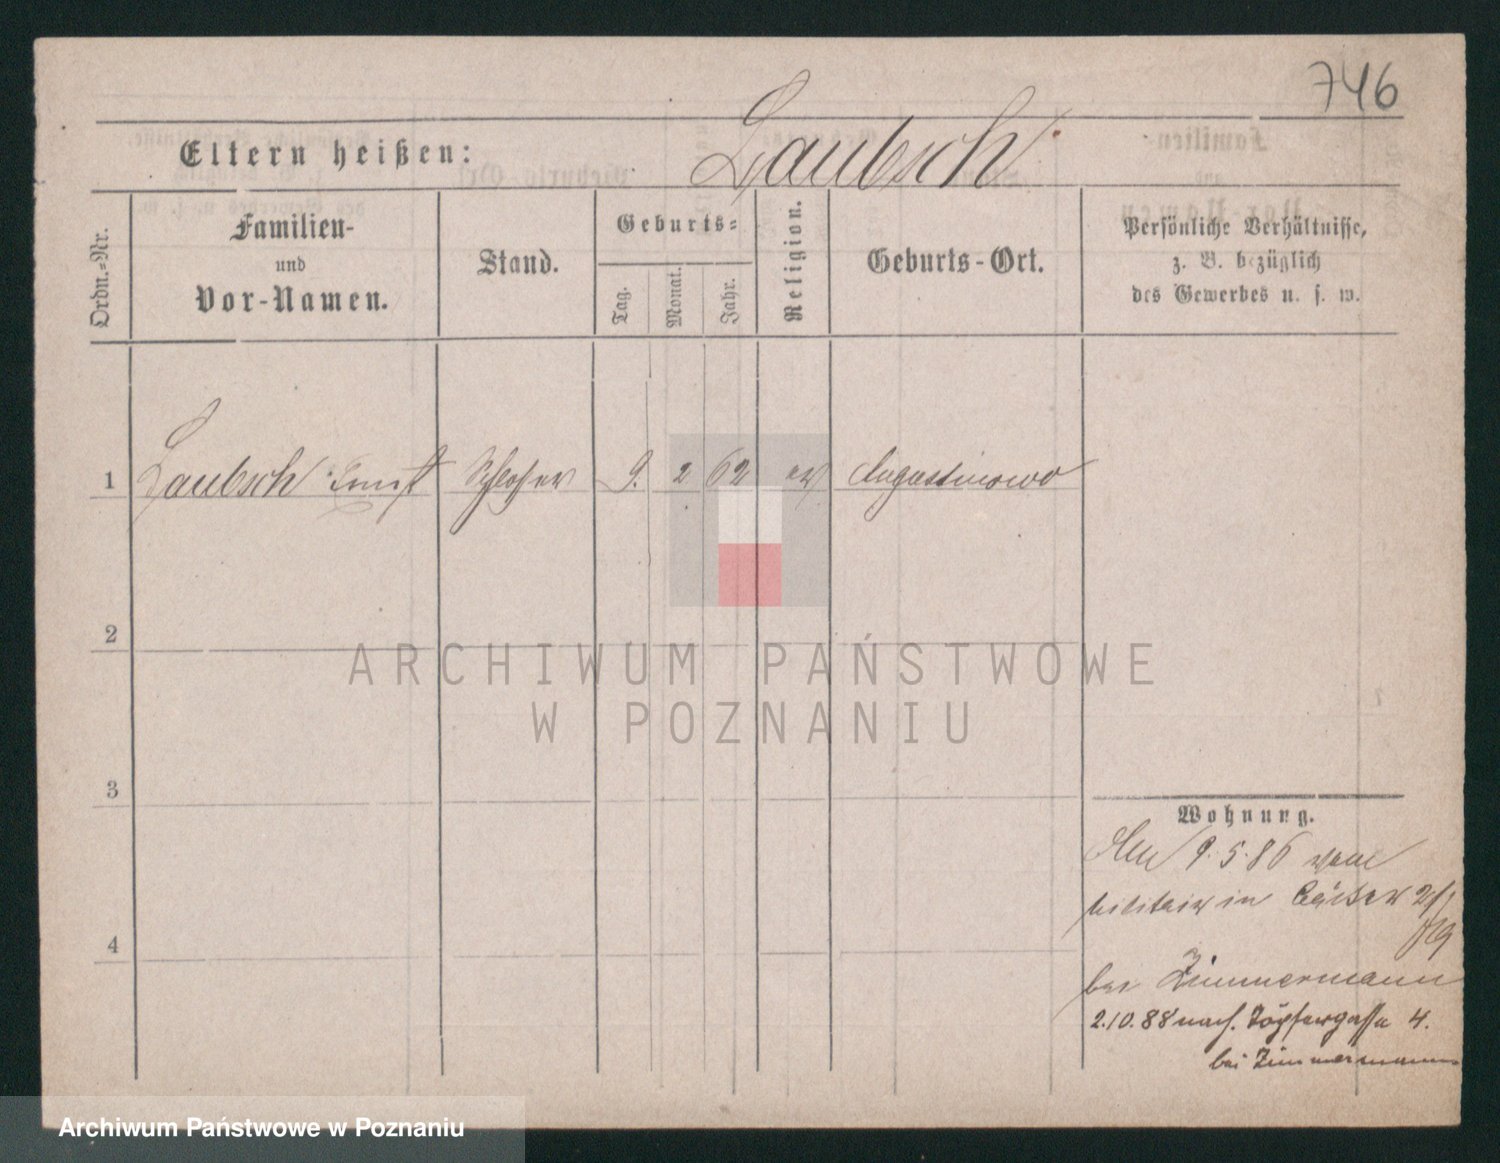 746
Eltern heißen: Laubsch
Ordn.=Nr.
Familien-
und
Vor-Namen.
Stand.
Geburts=
Tag.
Monat.
Jahr.
Religion.
Geburts-Ort.
Persönliche Verhältnisse,
z. B. bezüglich
des Gewerbes u. s. w.
1 Laubsch Ernst Schlosser 9. 2 62 ev Augustinowo
2
ARCHIWUM PAŃSTWOWE
W POZNANIU
3
4
Wohnung.
Den 9.5.86 vom
Militair in
bei Zimmermann
2.10.88 nach Töpfergasse 4.
bei Zimmermann
Archiwum Państwowe w Poznaniu